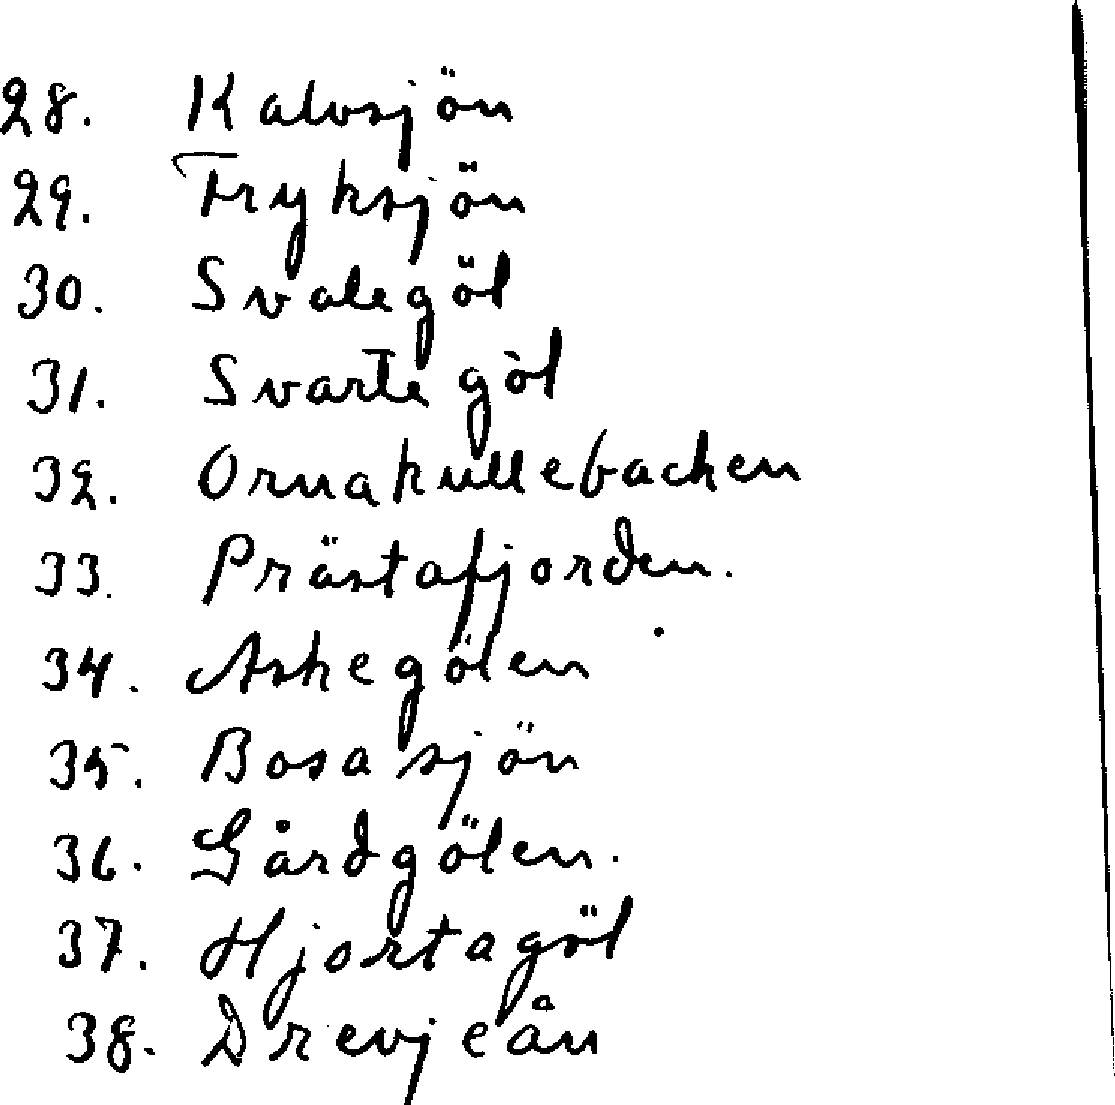 28. Kalvsjön
29. Fryksjön
30. Svalegöl
31. Svarte göl
32. Ornakullebacken
33. Prästafjorden.
34. Askegölen
35. Bosasjön
36. Gårdgölen.
37. Hjortagöl
38. Drevjeån